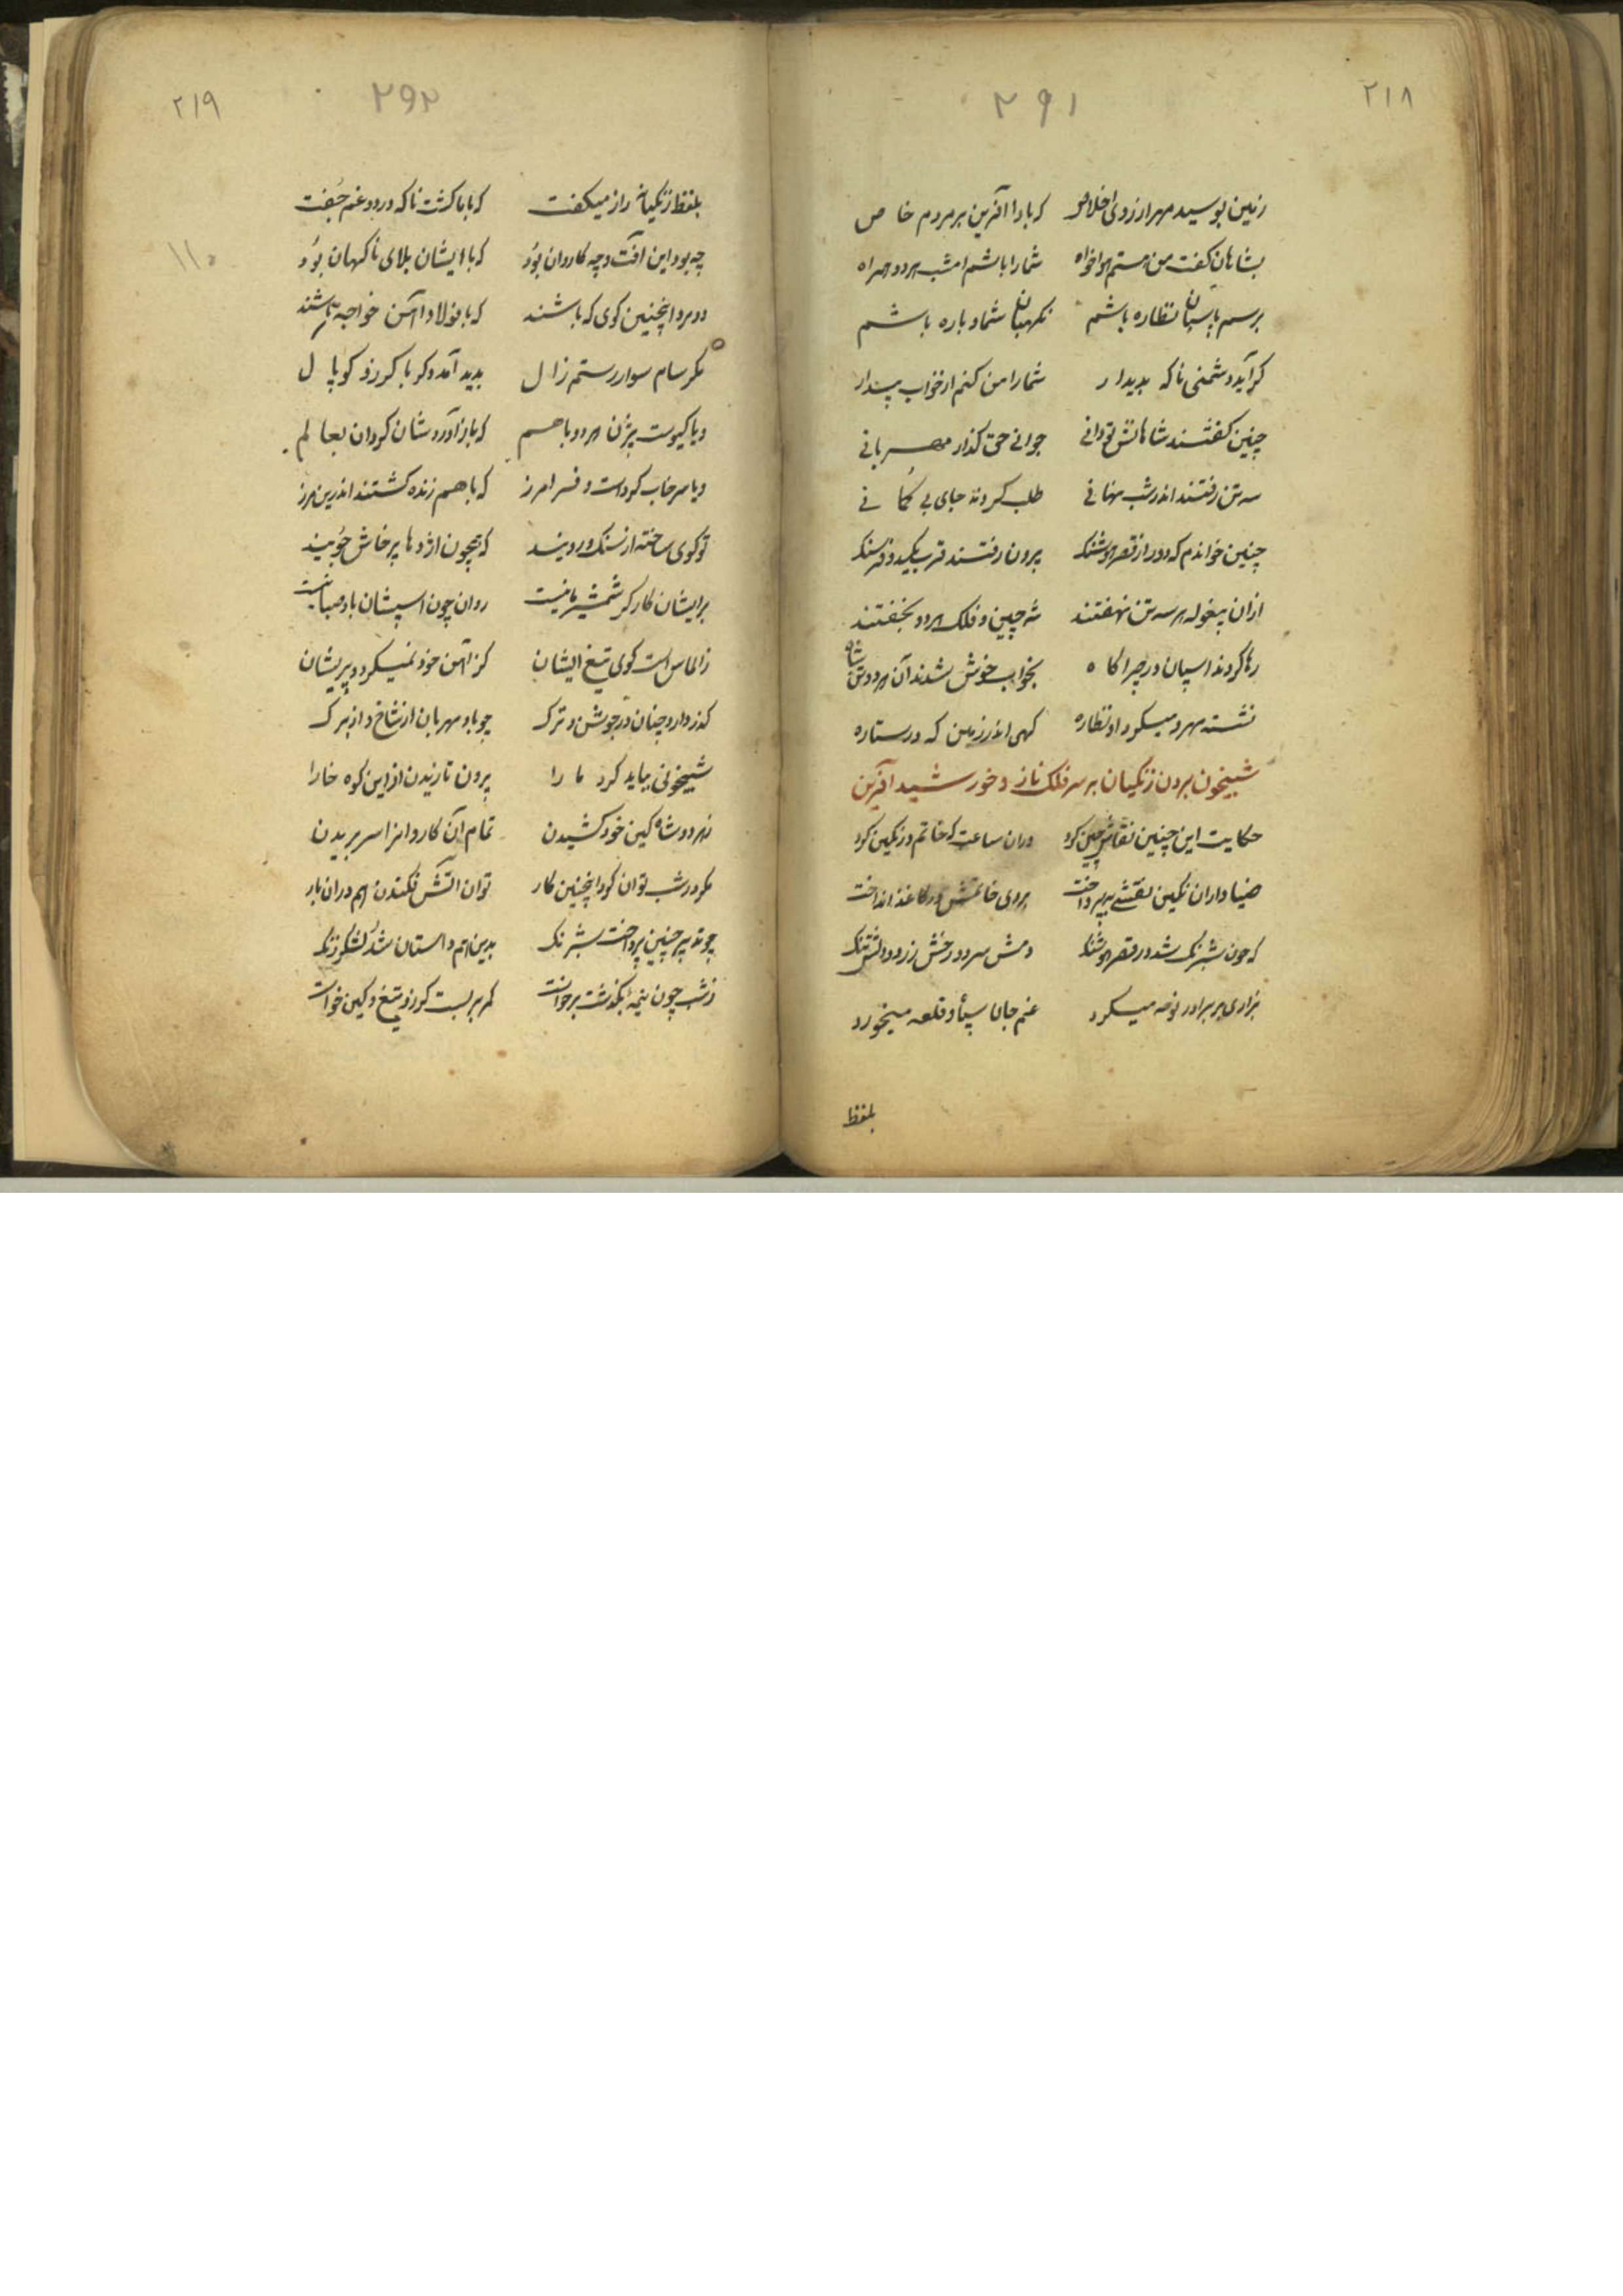 ۲۱۸
۲۹۱
زمین بوسید مهر از روی اخلاص که بادا آفرین بر مردم خاص
بشاهان گفت من هستم هواخواه شما را باشم امشب هر دو همراه
برسم پاسبان نظاره باشم نگهبان شما و باره باشم
گر آید دشمنی ناگه بدیدار شما را من کنم از خواب بیدار
چنین گفتند شاهانش تو دانی جوانی حق گذار مهربانی
سه تن رفتند اندر شب نهانی طلب کردند جای بی گمانی
چنین خواندم که دور از قصر هوشنگ برون رفتند قرب یکدو فرسنگ
ازان بیغوله هر سه تن نهفتند شه چین و فلک هر دو بخفتند
رها کردند اسپان در چراگاه بخواب خوش شدند آن هر دو تن شاه
نشسته مهر و میکرد او نظاره گهی اندر زمین که در ستاره
شبیخون بردن زنگیان بر سر فلک ناز و خورشید آفرین
حکایت این چنین نقاش چین کرد دران ساعت که خاتم در نگین کرد
ضیاداران نگین نقشی بپرداخت بروی خاتمش در کاغذ انداخت
که چون شبرنگ شد در قصر هوشنگ دمش سرد و رخش زرد و دلش تنگ
بزاری بر برادر نوحه میکرد غم جان سپاه و قلعه میخورد
بلفظ
۲۱۹
۲۹۲
۱۱۰
بلفظ زنگیان راز میگفت که باما گشت ناگه درد و غم جفت
چه بود این آفت و چه کاروان بود که با ایشان بلای ناگهان بود
دو مرد اینچنین گوی که باشند که با فولاد و آهن خواجه تاشند
مگر سام سوار و رستم زال بدید آمد دگر با گرز و کوپال
و یا گیوست بیژن هر دو باهم که باز آوردشان گردان بعالم
و یا سرخاب گردست و فرامرز که باهم زنده گشتند اندرین مرز
تو گوی ساخته از سنگ و رویند که همچون اژدها پرخاش جویند
برایشان کارگر شمشیر ما نیست روان چون اسپشان باد صبا نیست
ز الماس است گوی تیغ ایشان کز آهن خود نمیگردد پریشان
گذر دارد چنان در جوشن و ترک چو باد مهربان از شاخ و از برگ
شبیخونی بباید کرد ما را برون تازیدن از این کوه خارا
ز هر دو شاه کین خود کشیدن تمام آن کاروانرا سر بریدن
مگر در شب توان کرد اینچنین کار توان آتش فکندن هم دران بار
چو تدبیر چنین پرداخت شبرنگ بدین همداستان شد لشکر زنگ
ز شب چون نیمه بگذشت برخواست کمر بر بست گرز و تیغ و کین خواست